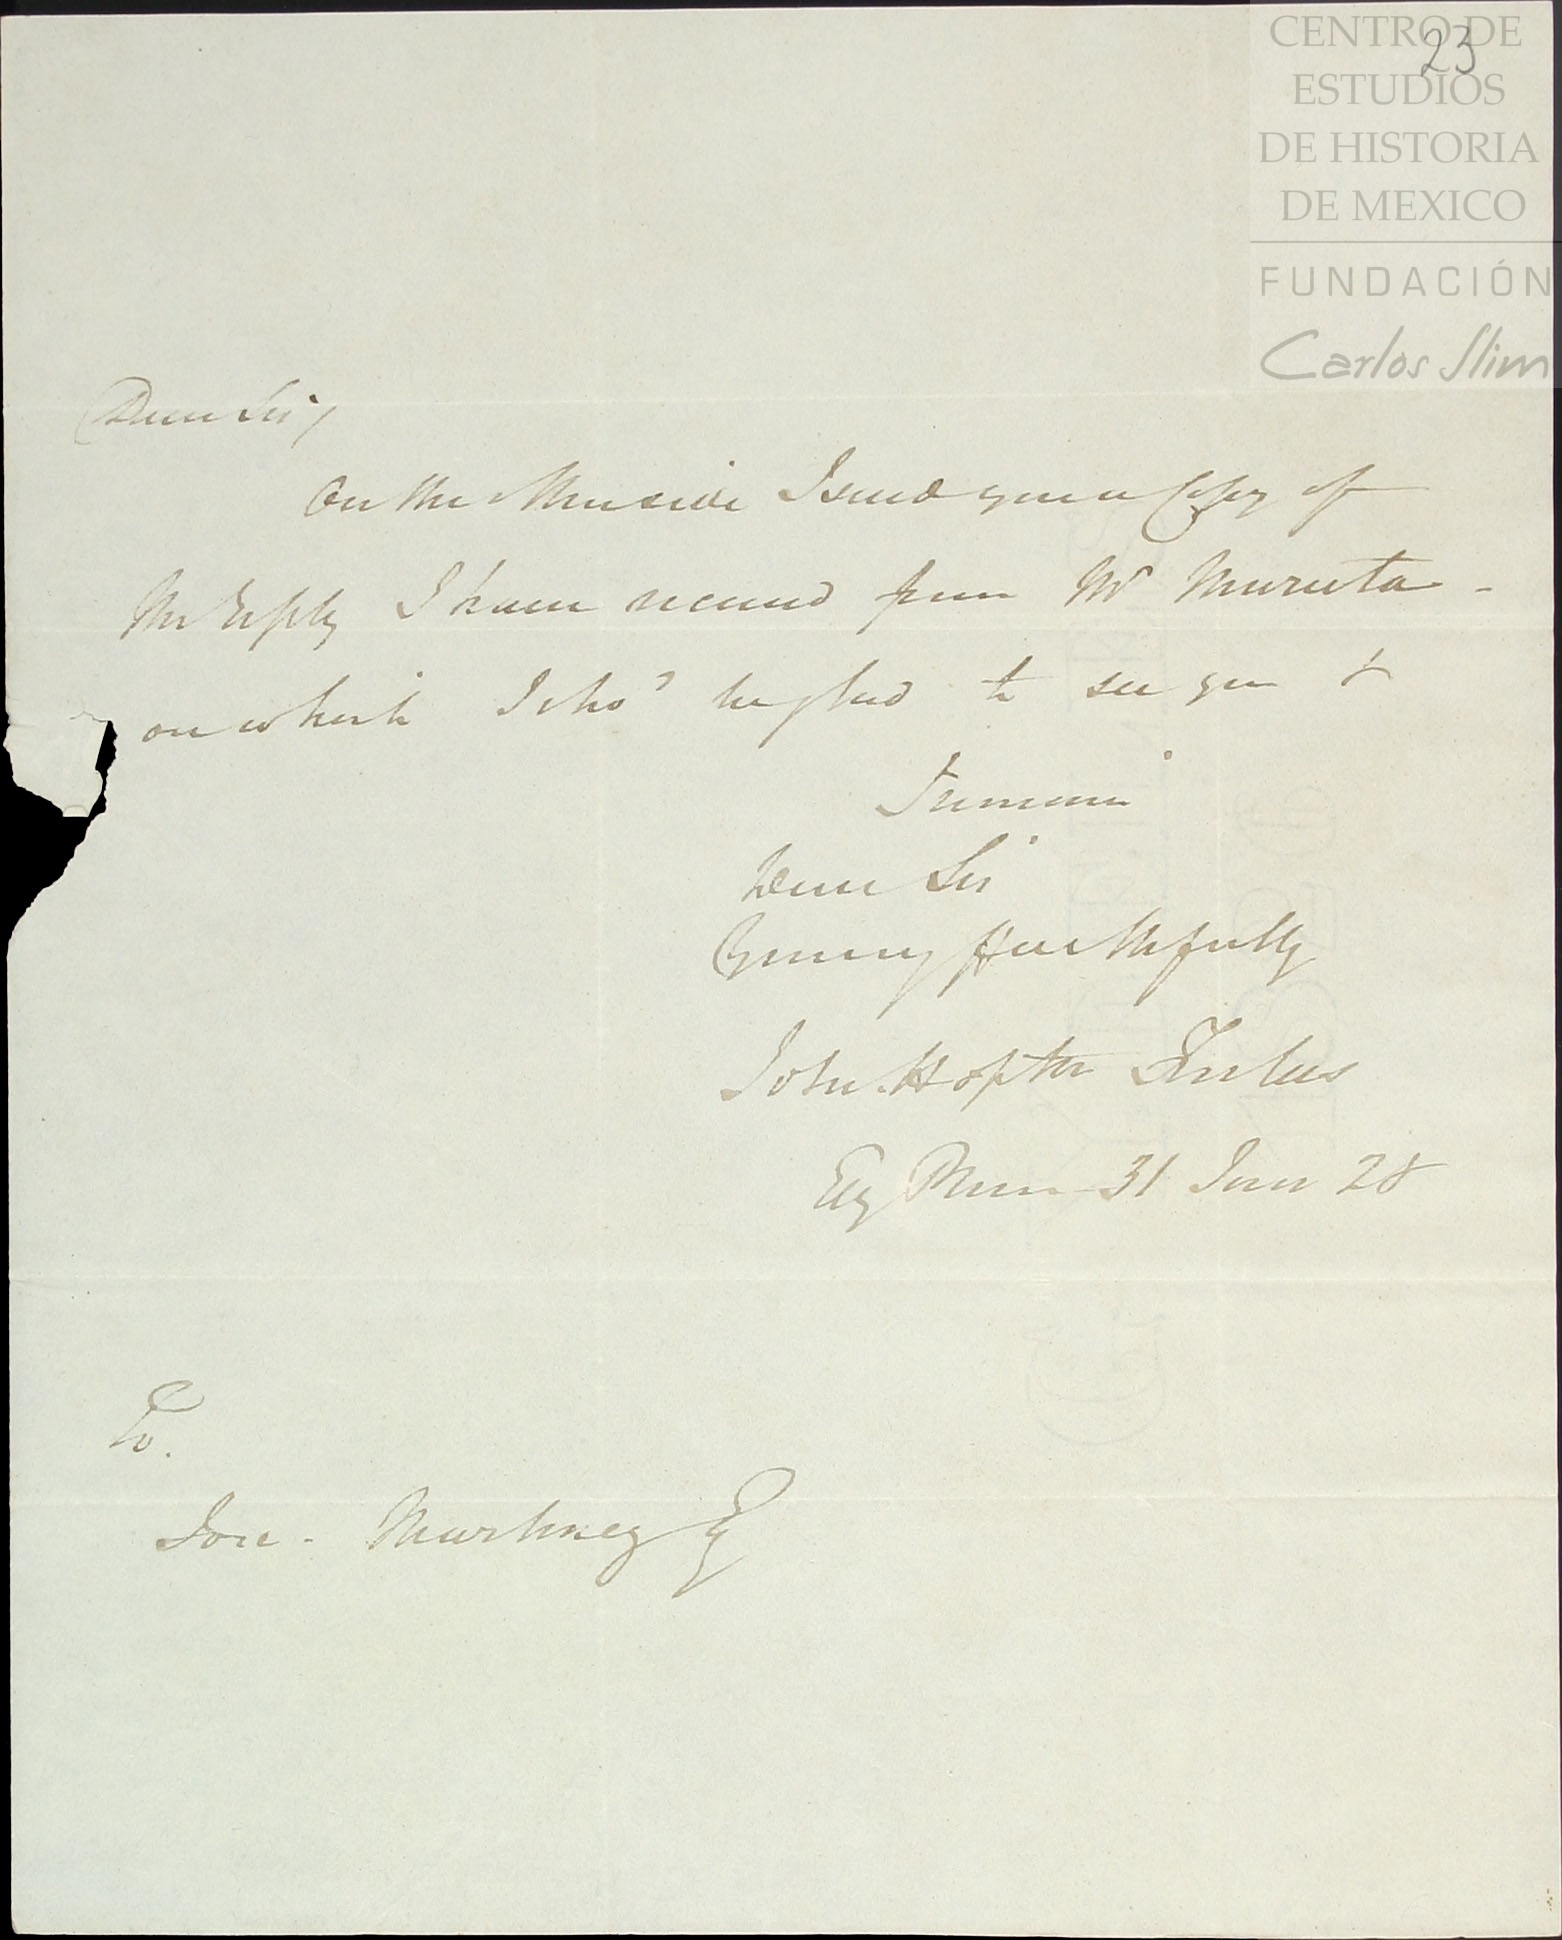 CENTRO DE
ESTUDIOS
DE HISTORIA
DE MEXICO
FUNDACIÓN
Carlos Slim
23
Dear Sir,
On the other side I send you a Copy of
the reply I have received from Mr Murrieta -
on which I sho'd be glad to see you &
I remain
Dear Sir
Yours faithfully
John Hopton Forbes
Ely Place 31 Jan 28
To.
Jose. Martinez Esq